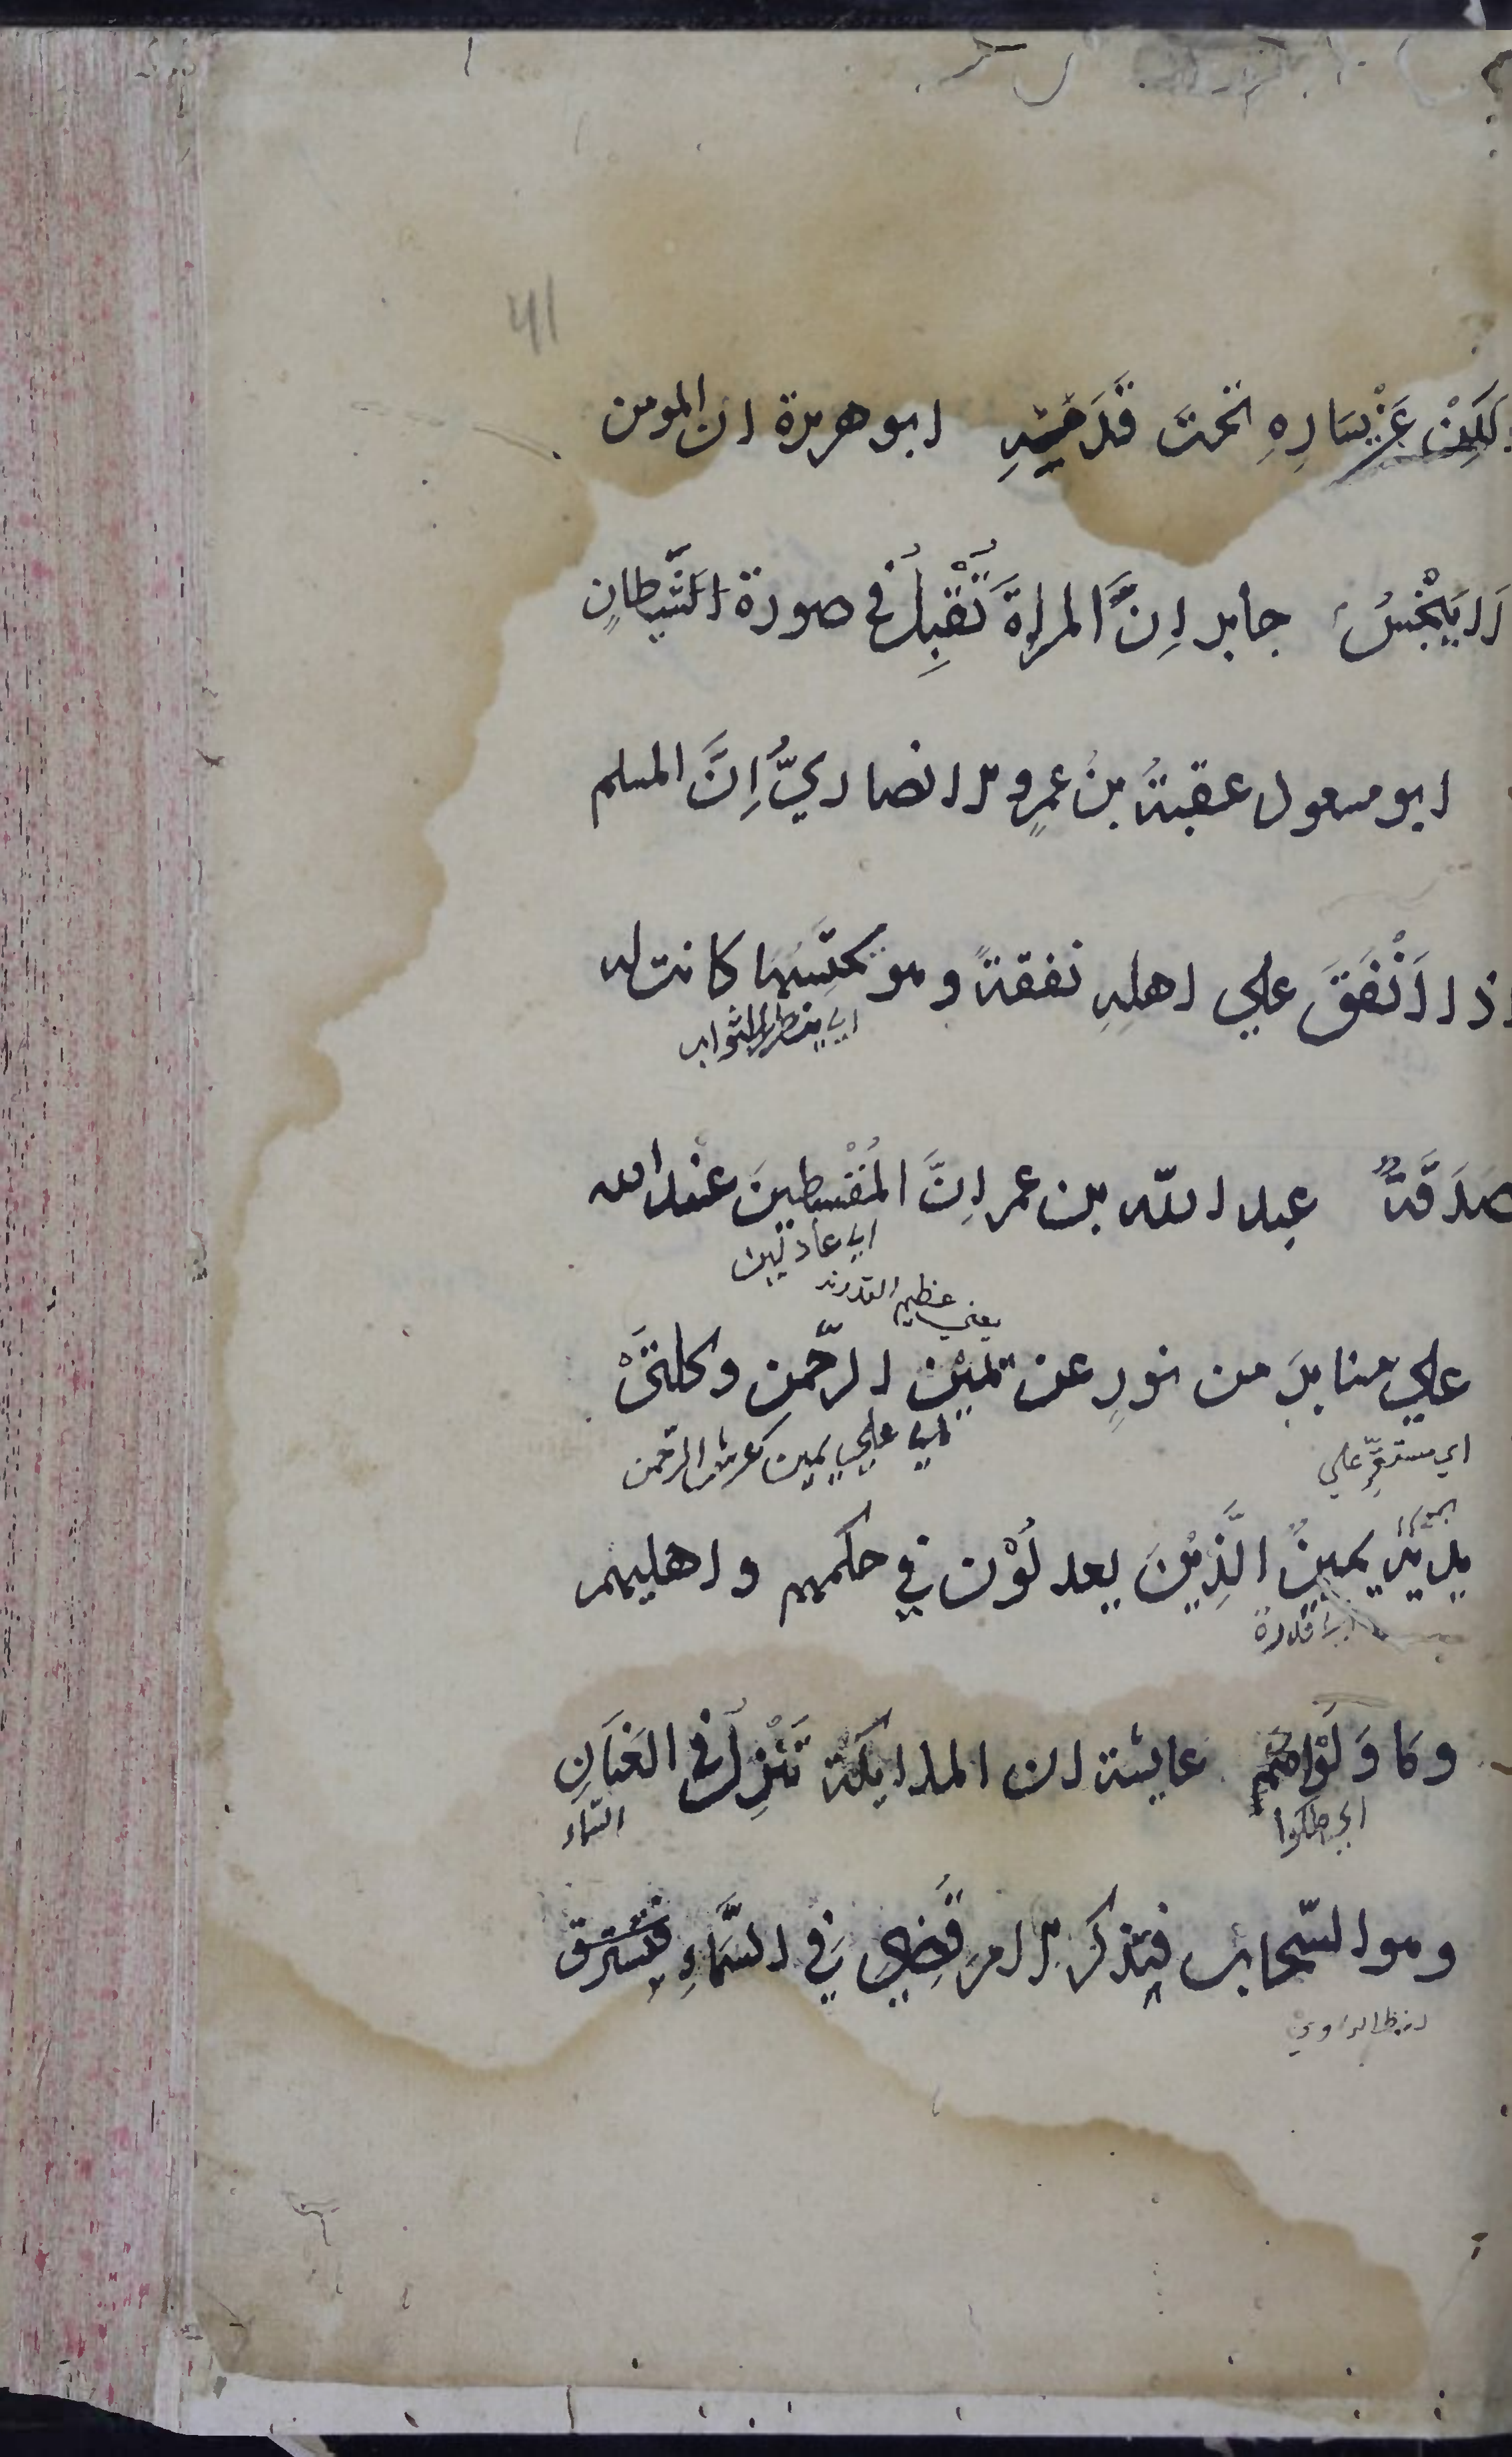 41
ولكن عَنْ يسَارِهِ تحتَ قَدَمَيْهِ ابو هريرة ان المومن
لا يَنْجُسُ جابر اِنَّ المراةَ تُقْبِلُ في صورة الشَّيطانِ
ابو مسعود عقبةُ بنُ عمرٍو الانصاريُّ اِنَّ المسلم
اذا اَنْفَقَ علي اهلِهِ نفقةً وهو يحتَسِبُهَا كانت له
اي ينتظر الثواب
صَدَقَةً عبد اللّه بن عمر اِنَّ المُقْسِطينَ عنْد الله
اي عادلين
يعني عظيم القدر
علي منابرَ من نورٍ عن يَمِيْنِ الرّحمن وكلتَىْ
اي مستقرّ علي
اي علي يمين عرش الرّحمن
يديه يمينٌ الَّذِيْنَ يعدلُوْن في حكمهم واهليهم
اي قدرة
وما وَلُوْا عايشة ان الملايكة تَنْزِلُ في العَنَانِ
اي ملكوا
السّماء
وهو السّحاب فيذكر الامر قُضِيَ في السَّمَاءِ فيسترق
لفظ الراوي